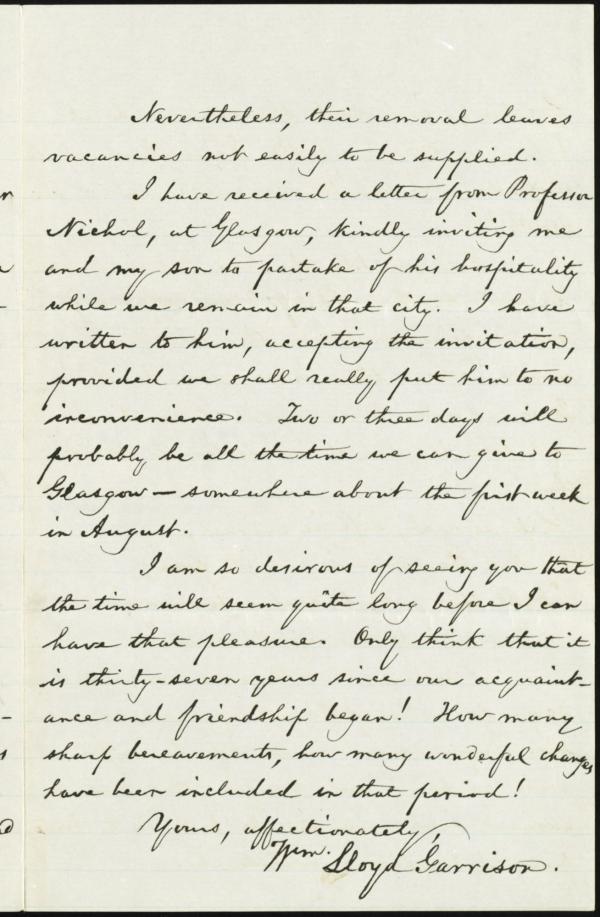 Nevertheless, their removal leaves
vacancies not easily to be supplied.
I have received a letter from Professor
Nichol, at Glasgow, kindly inviting me
and my son to partake of his hospitality
while we remain in that city. I have
written to him, accepting the invitation,
provided we shall really put him to no
inconvenience. Two or three days will
probably be all the time we can give to
Glasgow — somewhere about the first week
in August.
I am so desirous of seeing you that
the time will seem quite long before I can
have that pleasure. Only think that it
is thirty-seven years since our acquaint-
ance and friendship began! How many
sharp bereavements, how many wonderful changes
have been included in that period!
Yours, affectionately,
Wm. Lloyd Garrison.